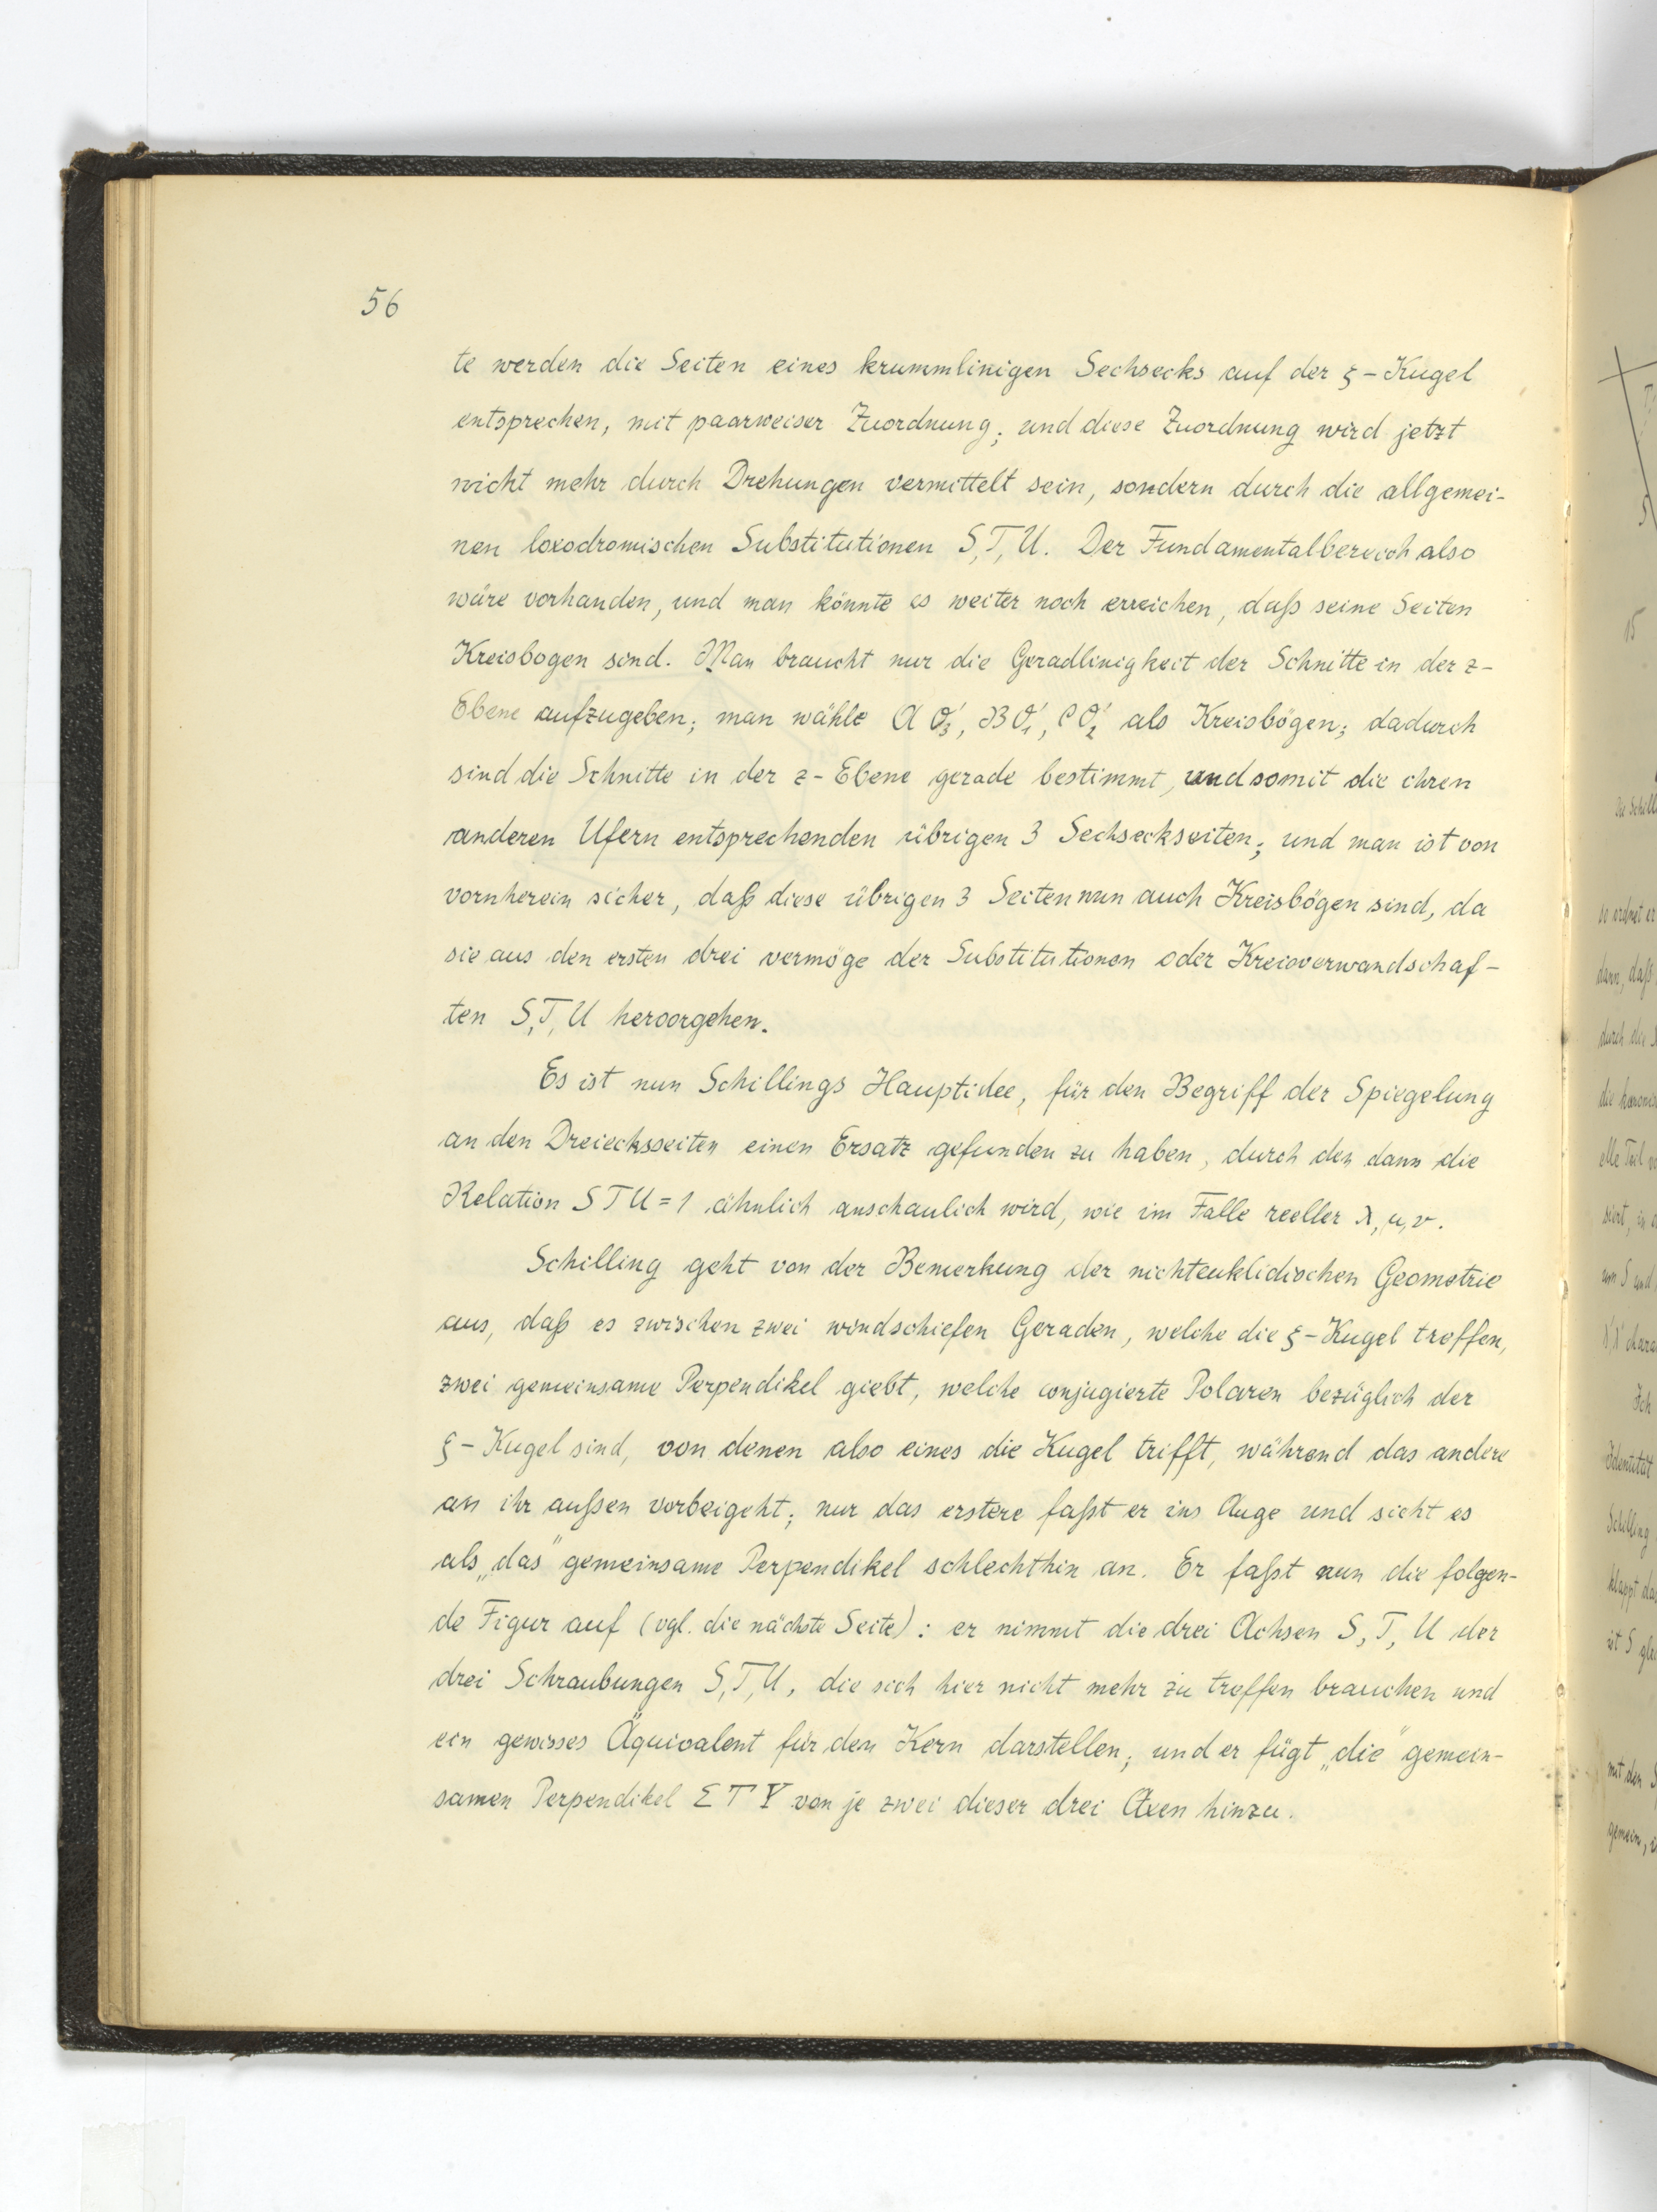 56
te werden die Seiten eines krummlinigen Sechsecks auf der ξ-Kugel
entsprechen, mit paarweiser Zuordnung; und diese Zuordnung wird jetzt
nicht mehr durch Drehungen vermittelt sein, sondern durch die allgemei-
nen loxodromischen Substitutionen S, T, U. Der Fundamentalbereich also
wäre vorhanden, und man könnte es weiter noch erreichen, daß seine Seiten
Kreisbogen sind. Man braucht nur die Geradlinigkeit der Schnitte in der z-
Ebene aufzugeben; man wähle A O₃', B O₁', C O₂' als Kreisbögen; dadurch
sind die Schnitte in der z-Ebene gerade bestimmt, und somit die ihren
anderen Ufern entsprechenden übrigen 3 Sechseckseiten; und man ist von
vornherein sicher, daß diese übrigen 3 Seiten nun auch Kreisbögen sind, da
sie aus den ersten drei vermöge der Substitutionen oder Kreisverwandschaf-
ten S, T, U hervorgehen.
Es ist nun Schillings Hauptidee, für den Begriff der Spiegelung
an den Dreiecksseiten einen Ersatz gefunden zu haben, durch den dann die
Relation S T U = 1 ähnlich anschaulich wird, wie im Falle reeller λ, μ, ν.
Schilling geht von der Bemerkung der nichteuklidischen Geometrie
aus, daß es zwischen zwei windschiefen Geraden, welche die ξ-Kugel treffen,
zwei gemeinsame Perpendikel giebt, welche conjugierte Polaren bezüglich der
ξ-Kugel sind, von denen also eines die Kugel trifft, während das andere
an ihr außen vorbeigeht; nur das erstere faßt er ins Auge und sieht es
als „das" gemeinsame Perpendikel schlechthin an. Er faßt nun die folgen-
de Figur auf (vgl. die nächste Seite): er nimmt die drei Achsen S, T, U der
drei Schraubungen S, T, U, die sich hier nicht mehr zu treffen brauchen und
ein gewisses Äquivalent für den Kern darstellen; und er fügt „die" gemein-
samen Perpendikel Σ T Υ von je zwei dieser drei Axen hinzu.
15
so ordnet er
dann, daß
durch die
elle Teil
um S und
Ich
Identität
Schilling
klappt das
ist S glei
mit den S
gemein,